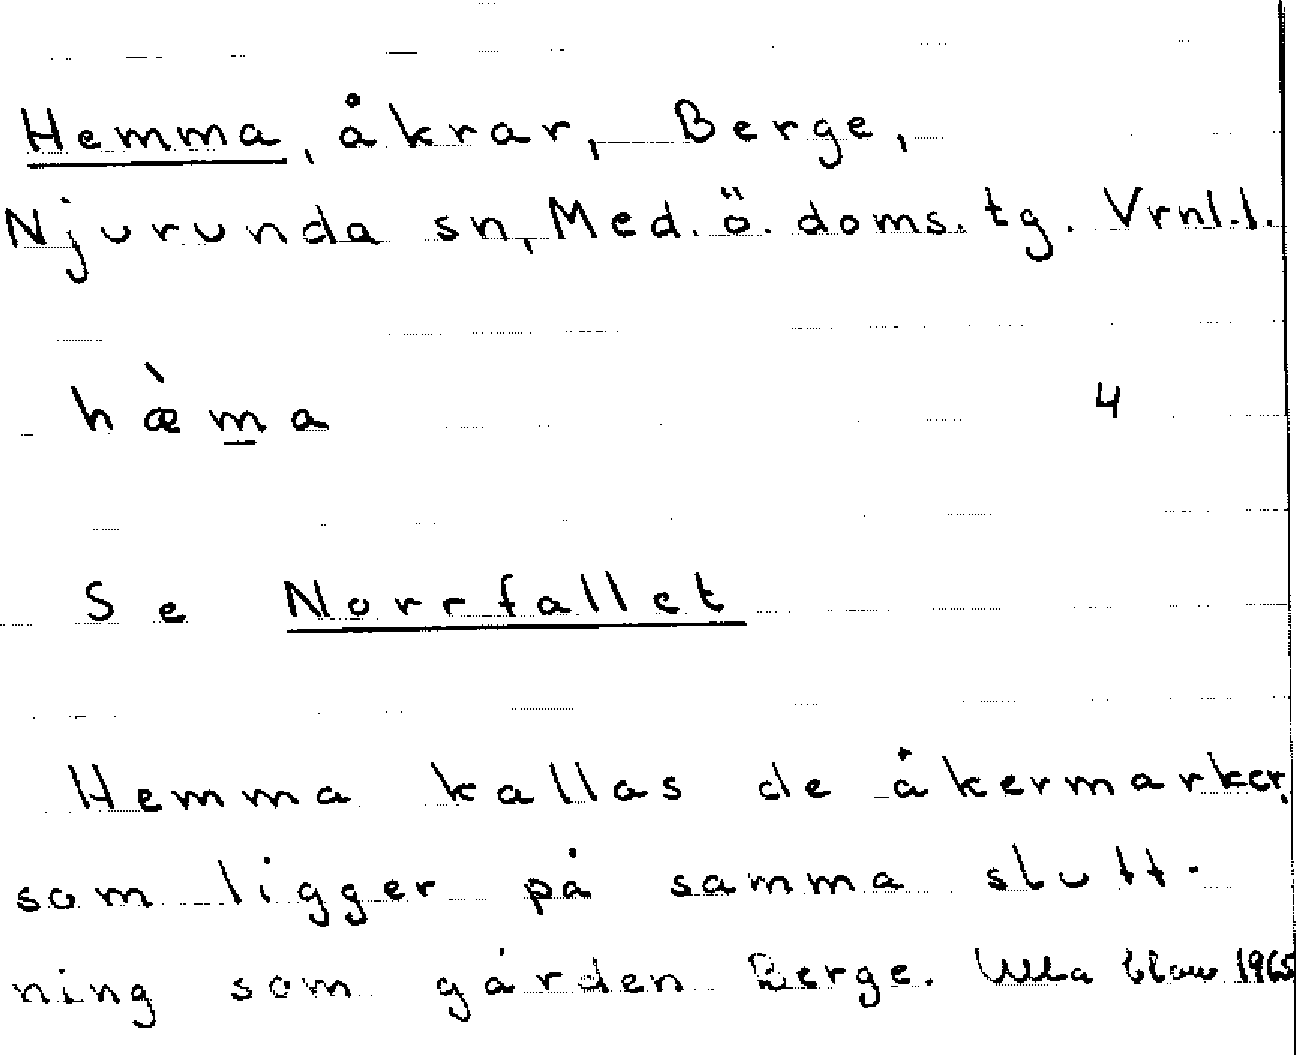 Hemma, åkrar, Berge,
Njurunda sn, Med. ö. doms. tg. Vrnl.l.
hæ̀m̲a 4
Se Norrfallet
Hemma kallas de åkermarker,
som ligger på samma slutt-
ning som gården Berge. Ulla 1965